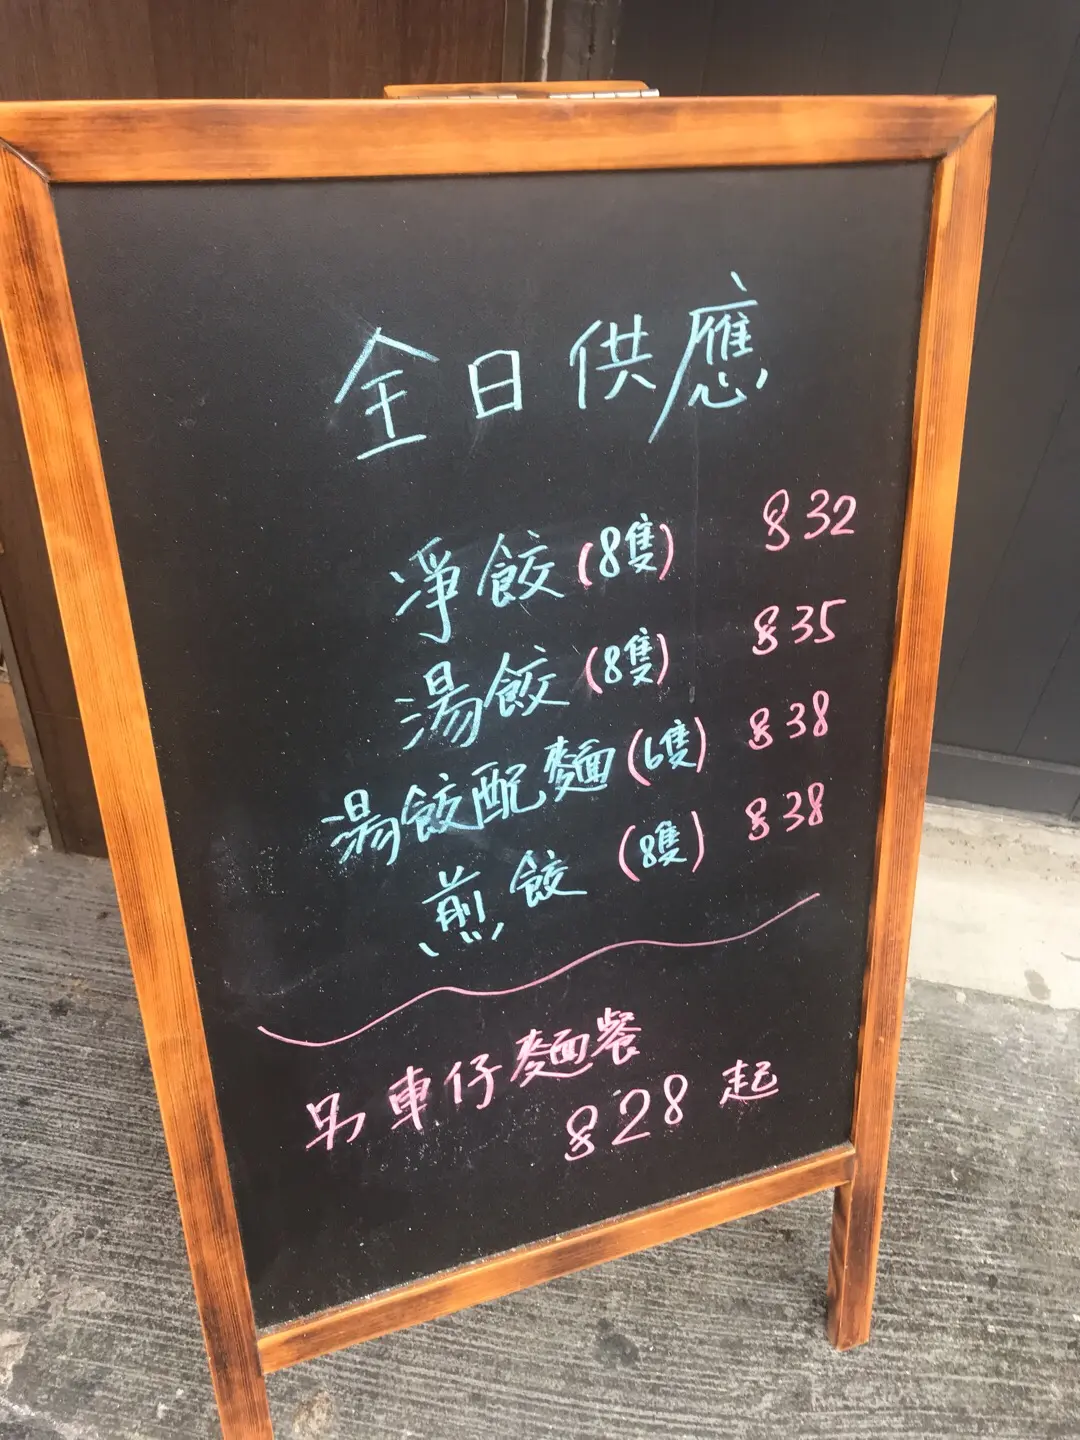 全日供應
淨餃(8隻) $32
湯餃(8隻) $35
湯餃配麵(6隻) $38
煎餃 (8隻) $38
另車仔麵餐
$28起